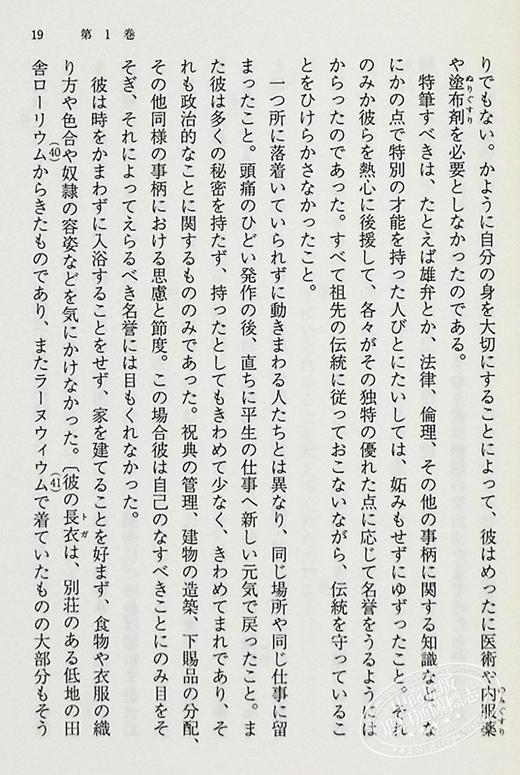 19　第1巻
りでもない。かように自分の身を大切にすることによって、彼はめったに医術や内服薬
や塗布剤を必要としなかったのである。
ぬりぐすり
特筆すべきは、たとえば雄弁とか、法律、倫理、その他の事柄に関する知識など、な
にかの点で特別の才能を持った人びとにたいしては、妬みもせずにゆずったこと。それ
のみか彼らを熱心に後援して、各々がその独特の優れた点に応じて名誉をうるようには
からったのであった。すべて祖先の伝統に従っておこないながら、伝統を守っているこ
とをひけらかさなかったこと。
一つ所に落着いていられずに動きまわる人たちとは異なり、同じ場所や同じ仕事に留
まったこと。頭痛のひどい発作の後、直ちに平生の仕事へ新しい元気で戻ったこと。ま
た彼は多くの秘密を持たず、持ったとしてもきわめて少なく、きわめてまれであり、そ
れも政治的なことに関するもののみであった。祝典の管理、建物の造築、下賜品の分配、
その他同様の事柄における思慮と節度。この場合彼は自己のなすべきことにのみ目をそ
そぎ、それによってえらるべき名誉には目もくれなかった。
彼は時をかまわずに入浴することをせず、家を建てることを好まず、食物や衣服の織
り方や色合や奴隷の容姿などを気にかけなかった。〔彼の長衣は、別荘のある低地の田
トガ
舎ローリウム(40)からきたものであり、またラーヌウィウム(41)で着ていたものの大部分もそう